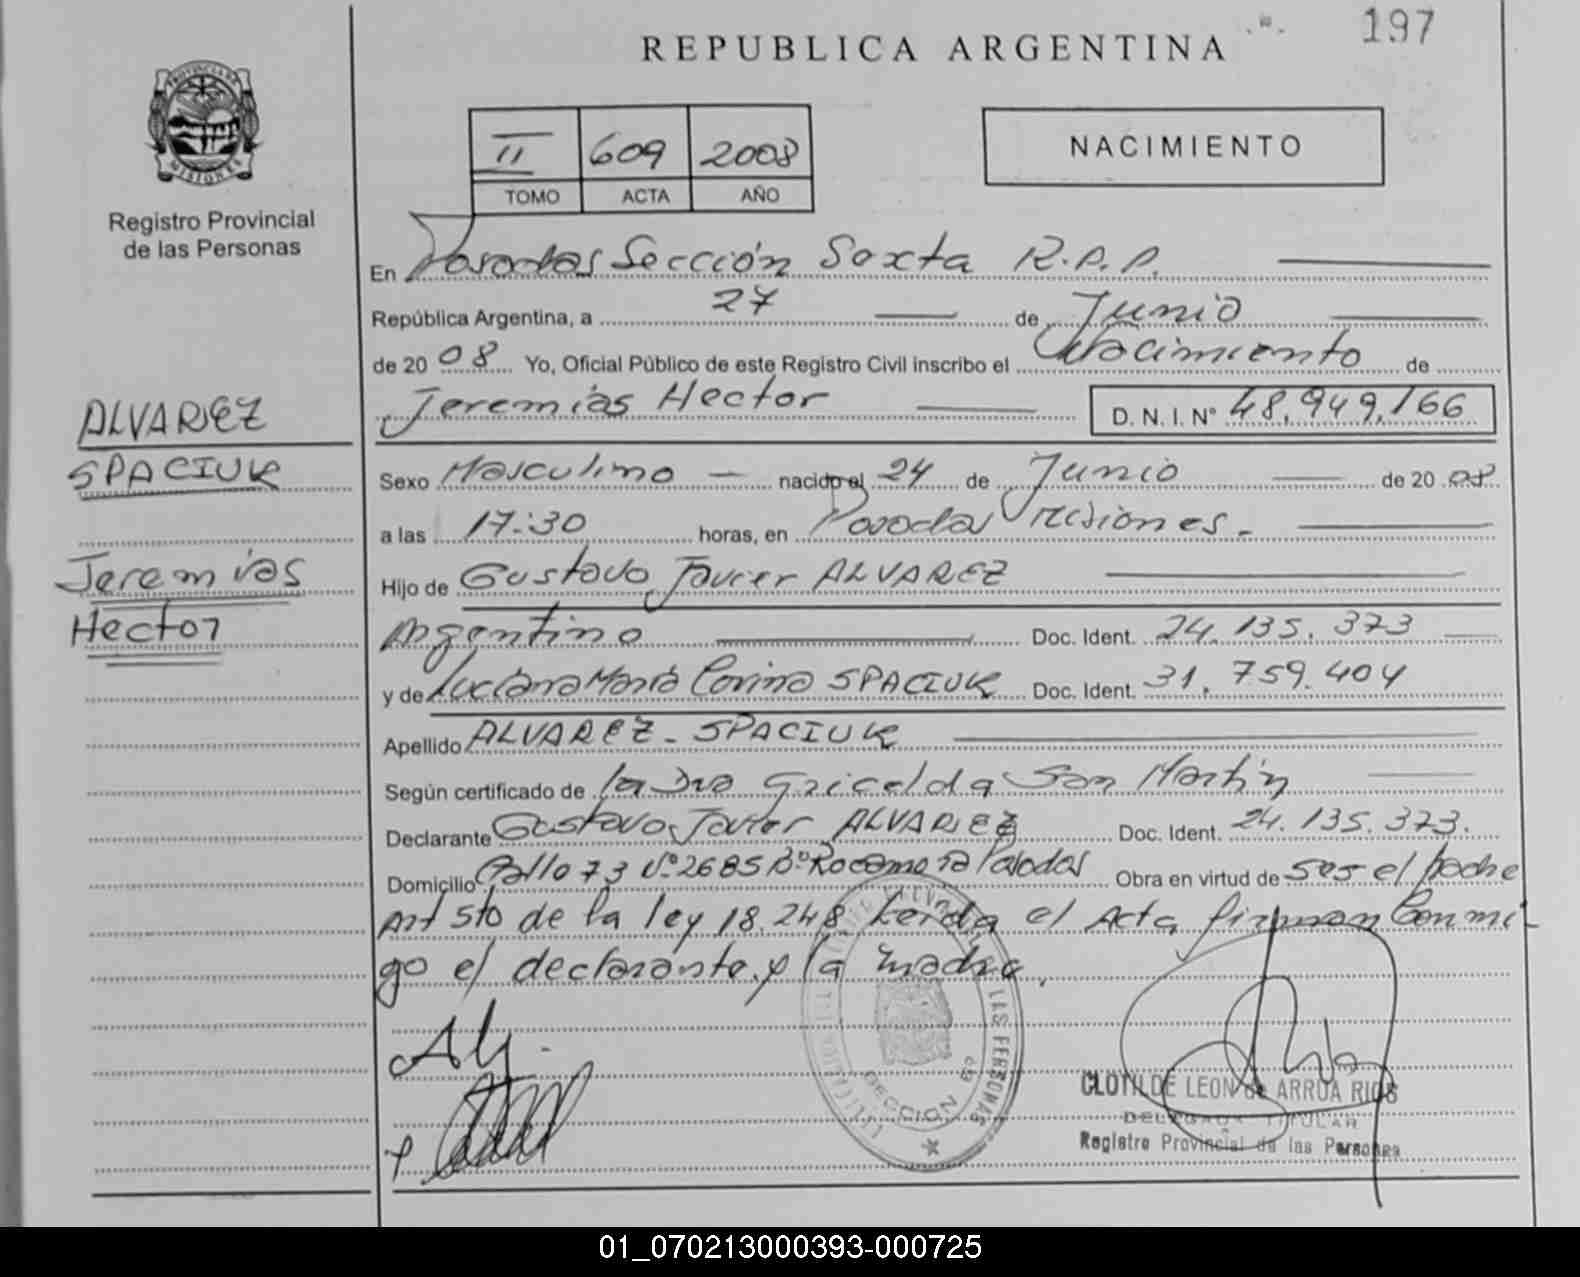 197
REPUBLICA ARGENTINA
PROVINCIA DE
MISIONES
Registro Provincial
de las Personas
II 609 2008
TOMO ACTA AÑO
NACIMIENTO
En Posadas Sección Sexta R.P.P.
República Argentina, a 27 de Junio
de 2008 Yo, Oficial Público de este Registro Civil inscribo el Nacimiento de
Jeremías Hector D. N. I. N° 48.949.166
ALVAREZ
SPACIUK
Jeremías
Hector
Sexo Masculino nacido el 24 de Junio de 2008
a las 17:30 horas, en Posadas Misiones.
Hijo de Gustavo Javier ALVAREZ
Argentino Doc. Ident. 24.135.373
y de Luciana María Corina SPACIUK Doc. Ident. 31.759.404
Apellido ALVAREZ - SPACIUK
Según certificado de la Dra Gricelda San Martín
Declarante Gustavo Javier ALVAREZ Doc. Ident. 24.135.373.
Domicilio Calle 73 N° 2685 B° Rocamora Posadas Obra en virtud de ser el padre
Art 5to de la ley 18.248 Leida el Acta firman Conmi
go el declarante y la madre.
LAS PERSONAS
SECCION 6a
CLOTILDE LEON de ARRUA RIOS
DELEGADA TITULAR
Registro Provincial de las Personas
01_070213000393-000725